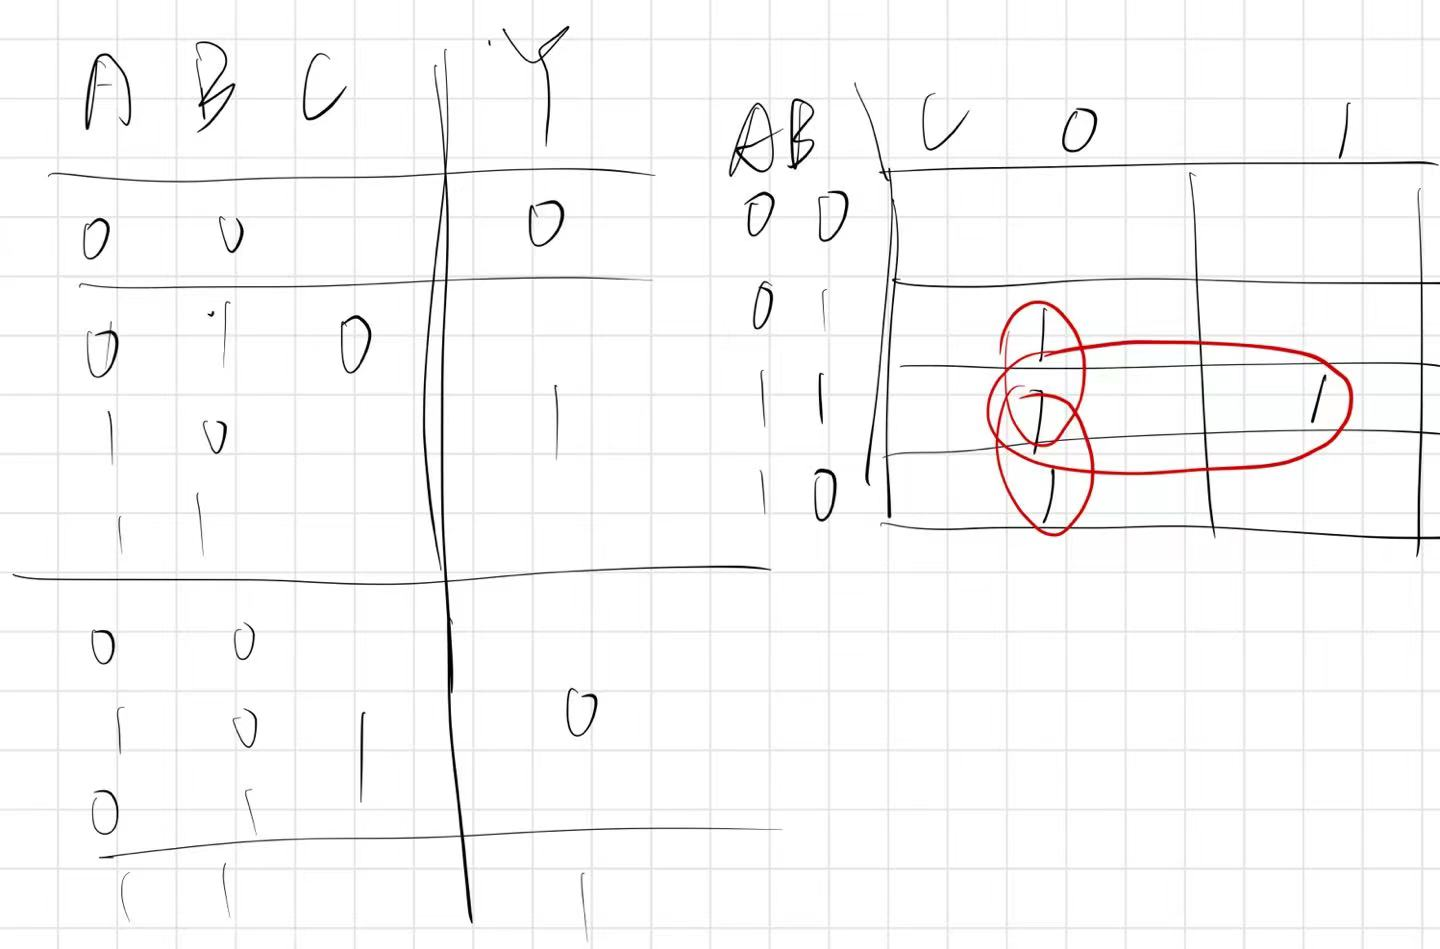 A B C Y
0 0 0
0 1 0
1 0 1
1 1
0 0
1 0 1 0
0 1
1 1 1
AB \ C 0 1
0 0
0 1 1
1 1 1 1
1 0 1